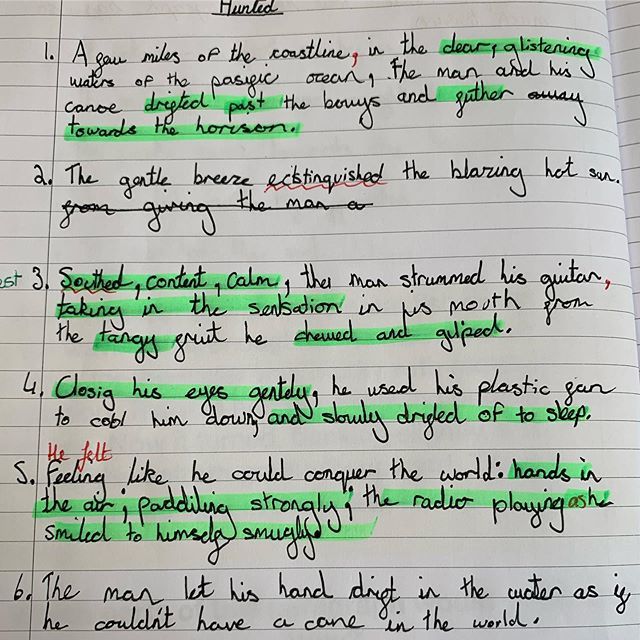 Hunted
1. A few miles of the coastline, in the clear, glistening
waters of the pasific ocean, the man and his
canoe drifted past the bouys and futher away
towards the horison.
2. The gentle breeze exstinguished the blazing hot sun.
from giving the man a
3. Southed, content, calm, the man strummed his guitar,
taking in the sensation in his mouth from
the tangy fruit he chewed and gulped.
4. Closig his eyes gently, he used his plastic fan
to cool him down, and slowly drifted of to sleep.
He felt
5. Feeling like he could conquer the world: hands in
the air; paddiling strongly; the radio playing as he
smiled to himself smugly.
6. The man let his hand drift in the water as if
he couldn't have a care in the world.